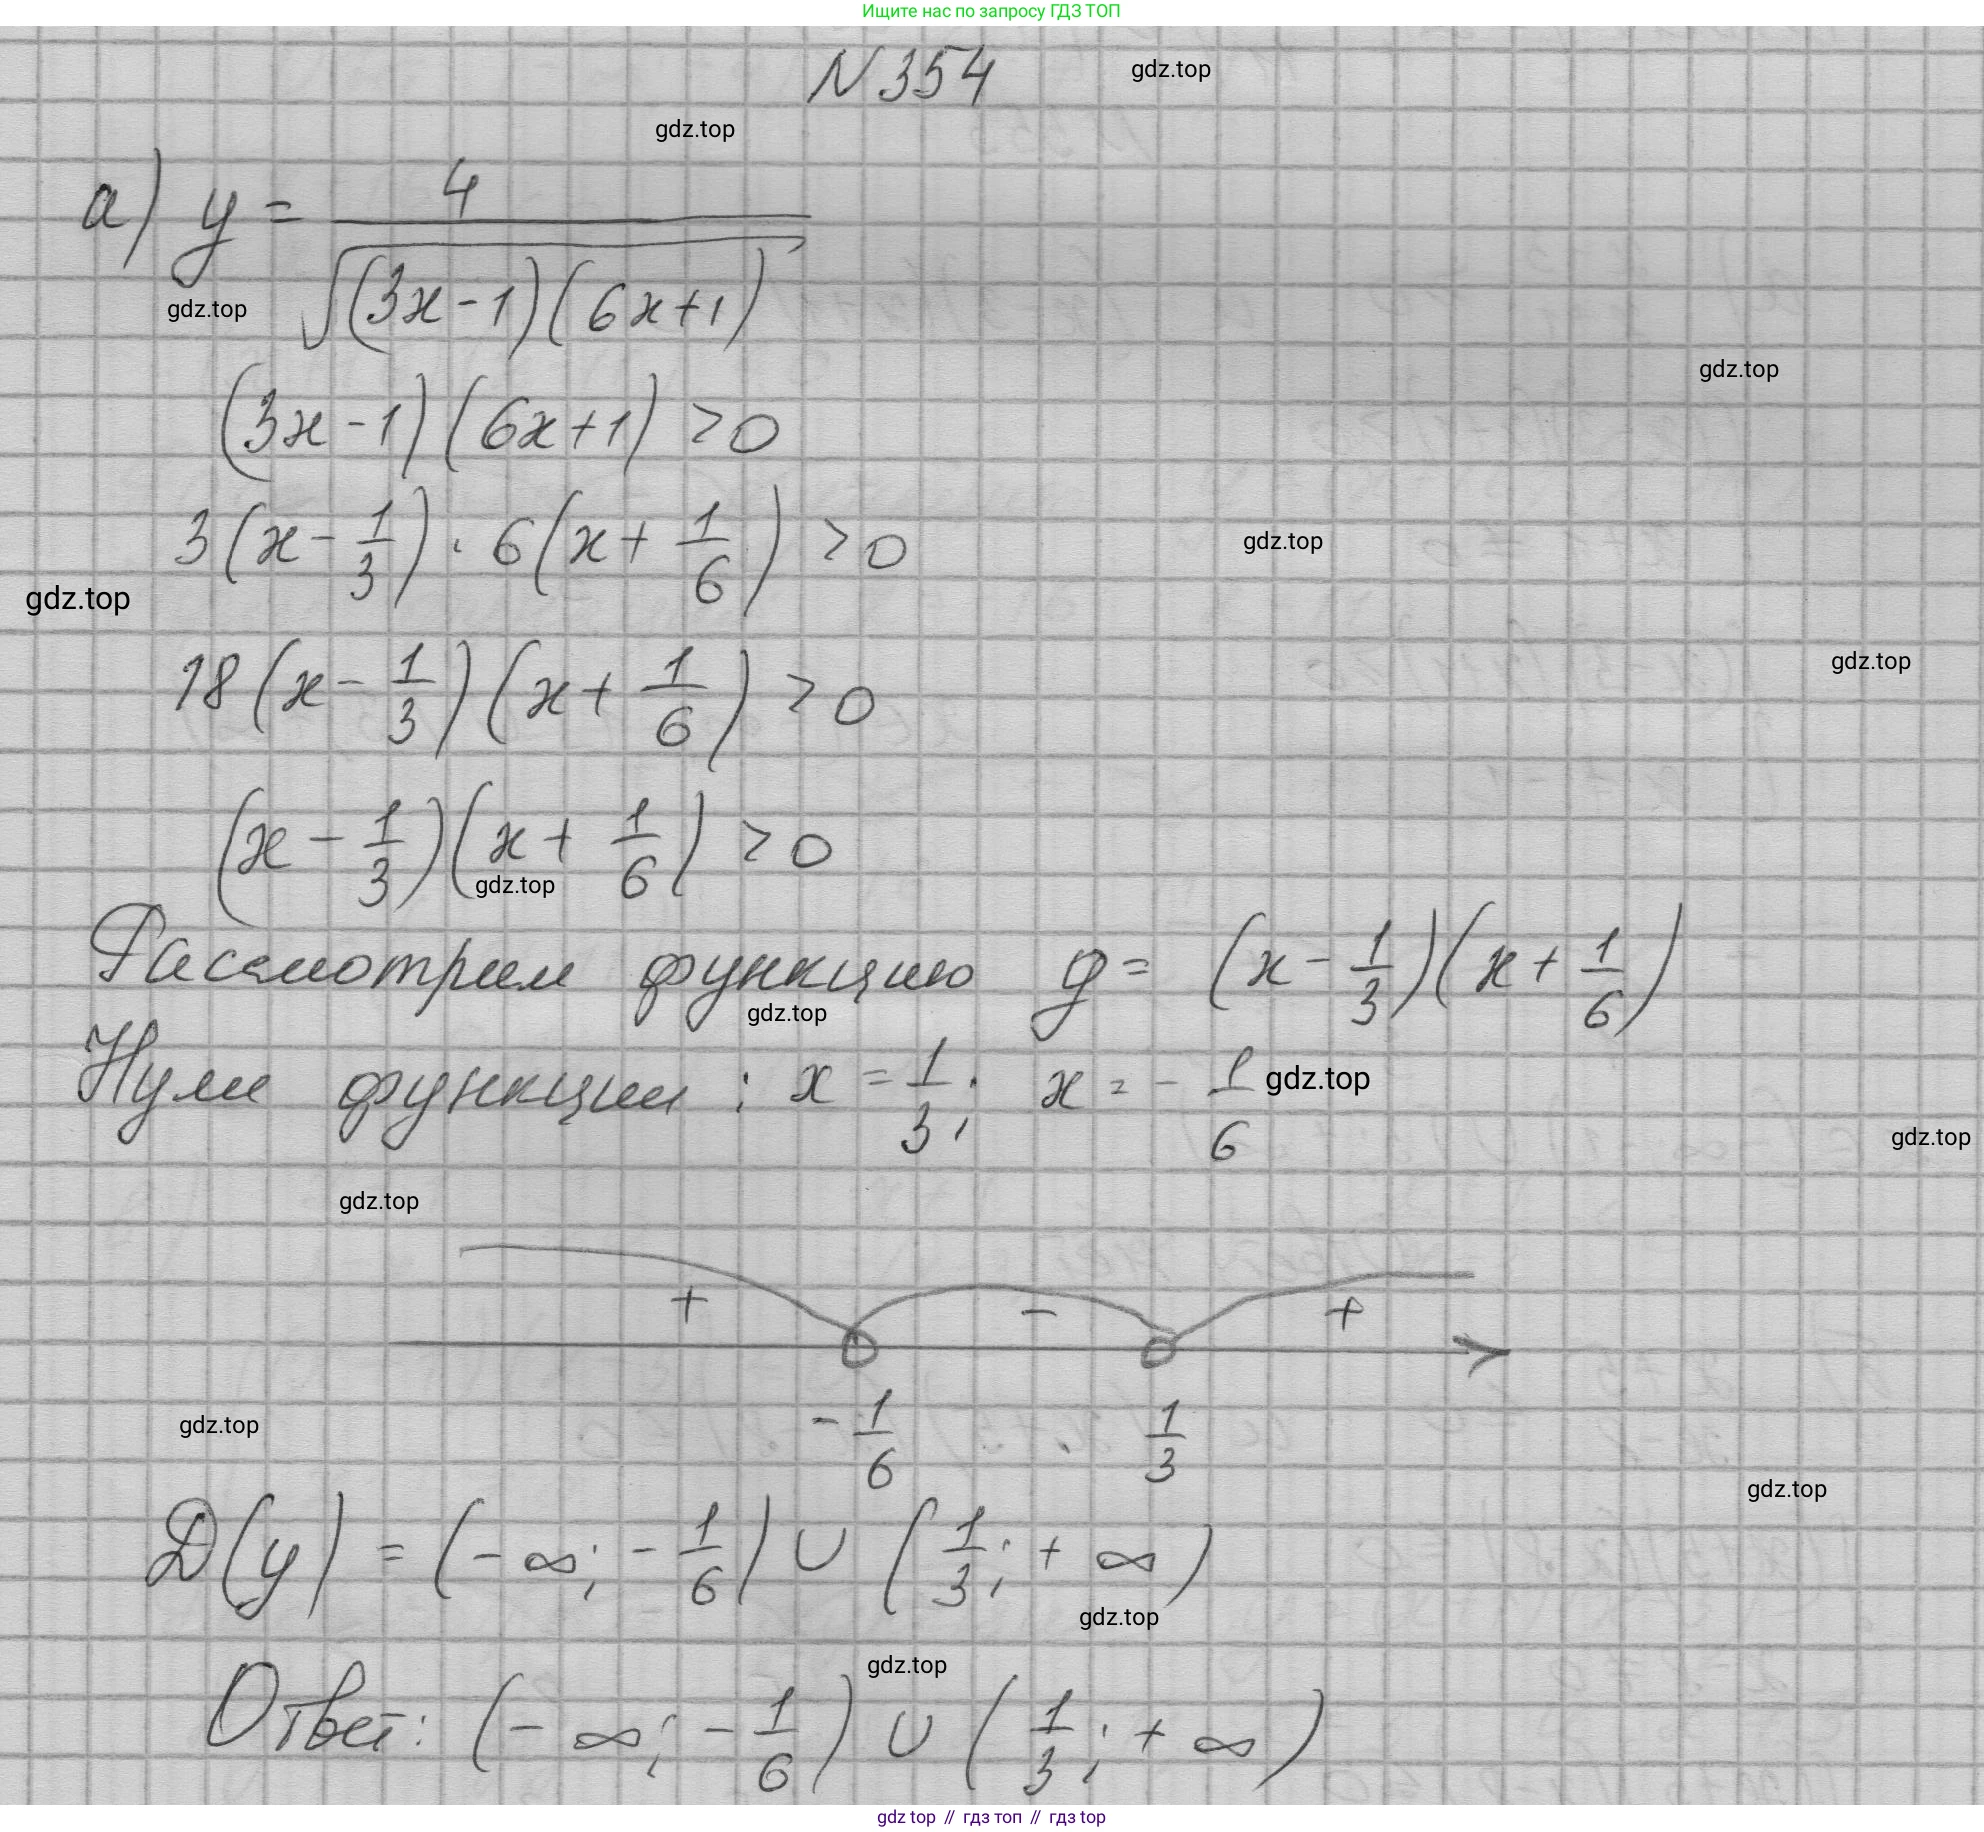 Ищите нас по запросу ГДЗ ТОП
N 354
gdz.top
gdz.top
а) y = 4 / √((3x-1)(6x+1))
gdz.top
gdz.top
(3x-1)(6x+1) > 0
3(x - 1/3) · 6(x + 1/6) > 0
gdz.top
gdz.top
18(x - 1/3)(x + 1/6) > 0
gdz.top
(x - 1/3)(x + 1/6) > 0
gdz.top
Рассмотрим функцию y = (x - 1/3)(x + 1/6)
gdz.top
Нули функции: x = 1/3; x = - 1/6
gdz.top
gdz.top
gdz.top
+ - +
- 1/6 1/3
gdz.top
gdz.top
D(y) = (-∞; - 1/6) ∪ (1/3; +∞)
gdz.top
gdz.top
Ответ: (-∞; - 1/6) ∪ (1/3; +∞)
gdz top // гдз топ // гдз top